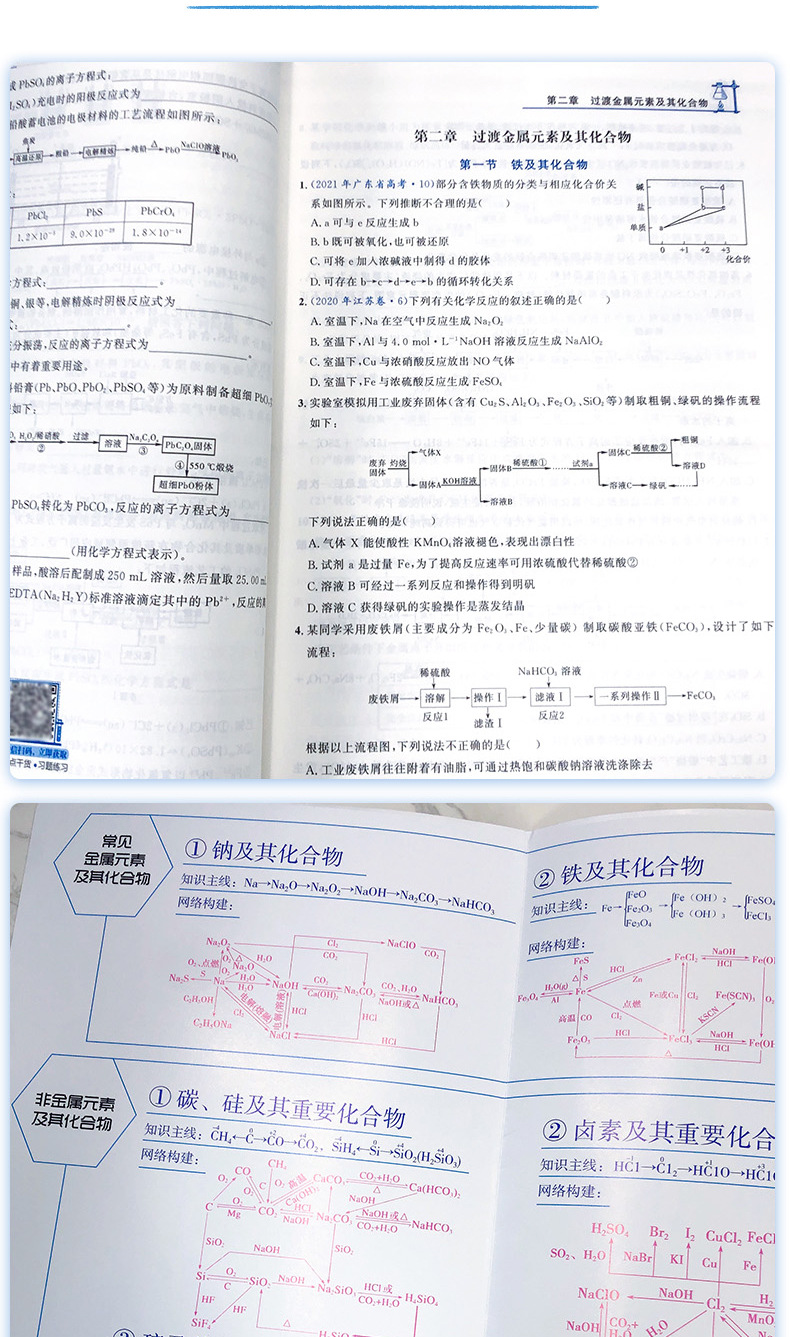 成 PbSO₄的离子方程式:
₂SO₄)充电时的阳极反应式为
铅酸蓄电池的电极材料的工艺流程如图所示:
焦炭
高温还原 粗铅 电解精炼 纯铅 △ PbO NaClO溶液 PbO₂
PbCl₂ PbS PbCrO₄
9.0×10⁻²⁹ 1.8×10⁻¹⁴
方程式:
铜、银等,电解精炼时阴极反应式为
分振荡,反应的离子方程式为
中有着重要用途。
铅膏(Pb、PbO、PbO₂、PbSO₄等)为原料制备超细 PbO,
如下:
H₂O₂/稀硝酸 ② 过滤 溶液 Na₂C₂O₄ ③ PbC₂O₄固体
④ 550 ℃煅烧
超细PbO粉体
PbSO₄转化为 PbCO₃,反应的离子方程式为
(用化学方程式表示)。
样品,酸溶后配制成 250 mL 溶液,然后量取 25.00 mL
EDTA(Na₂H₂Y)标准溶液滴定其中的 Pb²⁺,反应的
扫码,立即获取
点干货•习题练习
第二章 过渡金属元素及其化合物
第二章 过渡金属元素及其化合物
第一节 铁及其化合物
1.(2021年广东省高考·10)部分含铁物质的分类与相应化合价关
系如图所示。下列推断不合理的是( )
A. a 可与 e 反应生成 b
B. b 既可被氧化,也可被还原
C. 可将 e 加入浓碱液中制得 d 的胶体
D. 可存在 b→c→d→e→b 的循环转化关系
碱
盐
单质 a
0 +1 +2 +3
化合价
2.(2020年江苏卷·6)下列有关化学反应的叙述正确的是( )
A. 室温下,Na 在空气中反应生成 Na₂O₂
B. 室温下,Al 与 4.0 mol·L⁻¹NaOH 溶液反应生成 NaAlO₂
C. 室温下,Cu 与浓硝酸反应放出 NO 气体
D. 室温下,Fe 与浓硫酸反应生成 FeSO₄
3. 实验室模拟用工业废弃固体(含有 Cu₂S、Al₂O₃、Fe₂O₃、SiO₂等)制取粗铜、绿矾的操作流程
如下:
废弃固体 灼烧 气体X
固体A KOH溶液 固体B 稀硫酸① 试剂a 固体C 稀硫酸② 粗铜
溶液D
溶液B
溶液C 绿矾
下列说法正确的是( )
A. 气体 X 能使酸性 KMnO₄溶液褪色,表现出漂白性
B. 试剂 a 是过量 Fe,为了提高反应速率可用浓硫酸代替稀硫酸②
C. 溶液 B 可经过一系列反应和操作得到明矾
D. 溶液 C 获得绿矾的实验操作是蒸发结晶
4. 某同学采用废铁屑(主要成分为 Fe₂O₃、Fe、少量碳)制取碳酸亚铁(FeCO₃),设计了如下
流程:
稀硫酸 NaHCO₃ 溶液
废铁屑→溶解→操作Ⅰ→滤液Ⅰ→一系列操作Ⅱ→FeCO₃
反应1 滤渣Ⅰ 反应2
根据以上流程图,下列说法不正确的是( )
A. 工业废铁屑往往附着有油脂,可通过热饱和碳酸钠溶液洗涤除去
常见
金属元素
及其化合物
① 钠及其化合物
知识主线: Na→Na₂O→Na₂O₂→NaOH→Na₂CO₃→NaHCO₃
网络构建:
Na₂O₂ Cl₂ NaClO
CO₂ CO₂
O₂、点燃 O₂ △ H₂O
Na₂O
Na₂S S Na H₂O NaOH CO₂ Ca(OH)₂ Na₂CO₃ CO₂、H₂O NaOH或△ NaHCO₃
C₂H₅OH Cl₂ 电解(熔融) 电解(溶液) HCl HCl
C₂H₅ONa NaCl HCl
② 铁及其化合物
知识主线: Fe→ FeO Fe₂O₃ Fe₃O₄ → Fe(OH)₂ Fe(OH)₃ → FeSO₄ FeCl₃
网络构建:
FeS FeCl₂ NaOH HCl
△ S HCl Zn
Fe₃O₄ H₂O(g) Al Fe 点燃 Cl₂ Fe或Cu Cl₂ Fe(SCN)₃
高温 CO KSCN
Fe₂O₃ HCl FeCl₃ NaOH HCl
△
非金属元素
及其化合物
① 碳、硅及其重要化合物
知识主线: CH₄←C→CO→CO₂, SiH₄←Si→SiO₂(H₂SiO₃)
网络构建:
CH₄
CO O₂ CaCO₃ CO₂+H₂O △ Ca(HCO₃)₂
O₂ C O₂ 高温 Ca(OH)₂ NaOH
C O₂ Mg CO₂ HCl NaOH Na₂CO₃ NaOH或△ CO₂+H₂O NaHCO₃
SiO₂ NaOH SiO₂
Si O₂ C SiO₂ NaOH Na₂SiO₃ HCl或 CO₂+H₂O H₄SiO₄
HF HF
SiF₄ △
② 卤素及其重要化合
知识主线:
网络构建:
H₂SO₄ Br₂ I₂ CuCl₂
SO₂、H₂O NaBr KI Cu Fe
NaClO NaOH Cl₂
NaOH CO₂+ H₂O